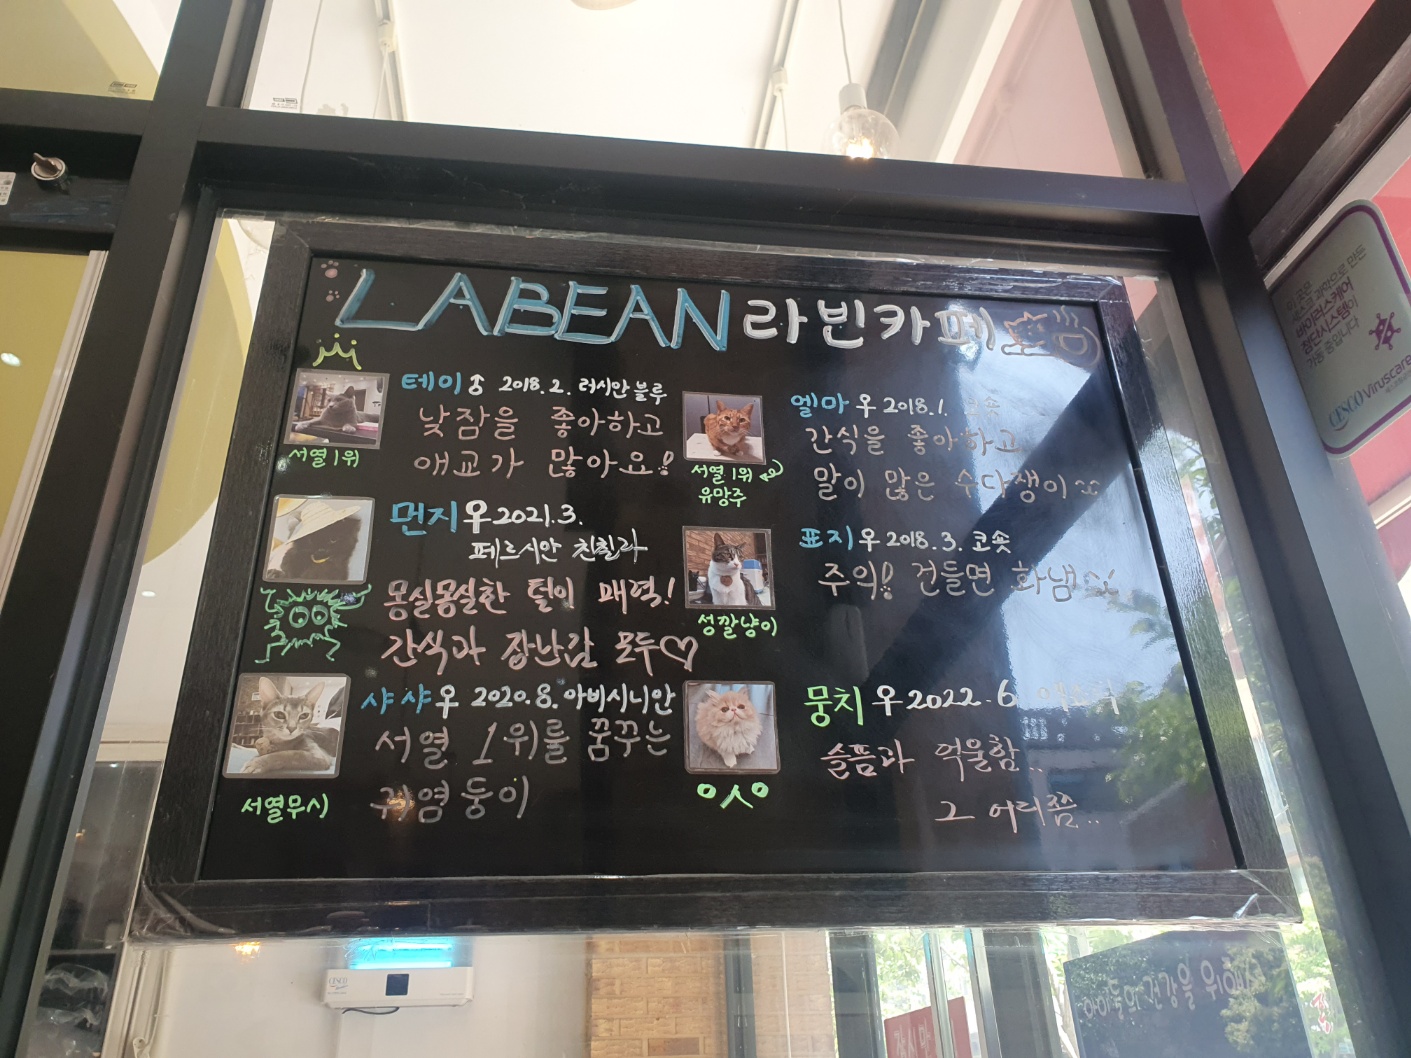 LABEAN 라빈카페
테이 ♂ 2018.2. 러시안블루
낮잠을 좋아하고
애교가 많아요!
서열 1위
먼지 우 2021.3.
페르시안 친칠라
몽실몽실한 털이 매력!
간식과 장난감 모두♡
샤샤 우 2020.8. 아비시니안
서열 1위를 꿈꾸는
귀염둥이
서열무시
엘마 우 2018.1. 코숏
간식을 좋아하고
말이 많은 수다쟁이
서열 1위
유망주
표지 우 2018.3. 코숏
주의! 건들면 화냄
성깔냥이
뭉치 우 2022.6.
슬픔과 억울함..
그 어디쯤..
ㅇㅅㅇ
바이러스케어
첨단시스템이
가동 중입니다
CESCO Viruscare
CESCO
아이들의 건강을 위해서